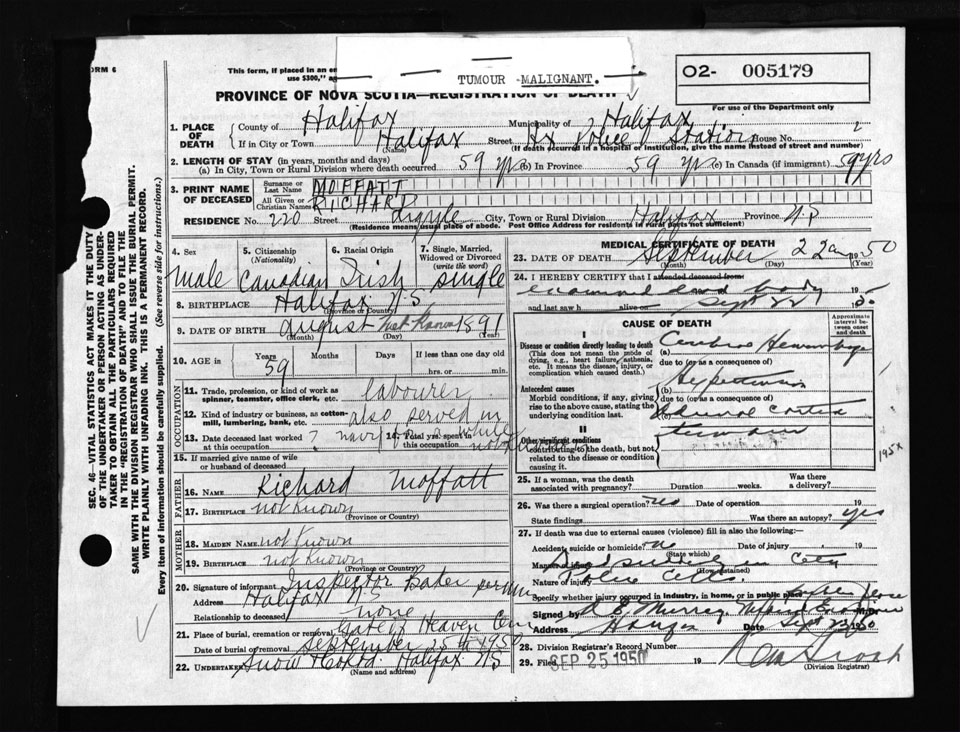 ORM 6
This form, if placed in an en
use $300," ag
TUMOUR MALIGNANT.
02- 005179
PROVINCE OF NOVA SCOTIA—REGISTRATION OF DEATH
For use of the Department only
1. PLACE OF DEATH
County of Halifax Municipality of Halifax
If in City or Town Halifax Street Hx Police Station House No.
(Name)
(If death occurred in a hospital or institution, give the name instead of street and number)
2. LENGTH OF STAY (in years, months and days)
(a) In City, Town or Rural Division where death occurred 59 yrs (b) In Province 59 yrs (c) In Canada (if immigrant) 59 yrs
3. PRINT NAME OF DECEASED
Surname or Last Name MOFFATT
All Given or Christian Names RICHARD
RESIDENCE No. 220 Street Argyle City, Town or Rural Division Halifax Province N.S
(Residence means usual place of abode. Post Office Address for residents in rural parts not sufficient)
4. Sex
male
5. Citizenship (Nationality)
Canadian
6. Racial Origin
Irish
7. Single, Married, Widowed or Divorced (write the word)
single
8. BIRTHPLACE Halifax N.S.
(Province or Country)
9. DATE OF BIRTH August not known 1891
(Month) (Day) (Year)
10. AGE in
Years Months Days If less than one day old
59 hrs. or min.
OCCUPATION
11. Trade, profession, or kind of work as spinner, teamster, office clerk, etc. labourer
12. Kind of industry or business, as cotton-mill, lumbering, bank, etc. also served in
13. Date deceased last worked at this occupation ? navy for a while
14. Total yrs. spent in this occupation
15. If married give name of wife or husband of deceased
FATHER
16. NAME Richard Moffatt
17. BIRTHPLACE not known
(Province or Country)
MOTHER
18. MAIDEN NAME not known
19. BIRTHPLACE not known
(Province or Country)
20. Signature of informant Inspector Baker per
Address Halifax N.S
Relationship to deceased none
21. Place of burial, cremation or removal Gate of Heaven Cem
Date of burial or removal September 25th 1950
22. UNDERTAKER Snow & Co Ltd. Halifax N.S
(Name and Address)
MEDICAL CERTIFICATE OF DEATH
23. DATE OF DEATH September 22nd 1950
(Month) (Day) (Year)
24. I HEREBY CERTIFY that I attended deceased from
examined dead body 19
and last saw h alive on Sept 22 50
CAUSE OF DEATH
Approximate interval between onset and death
I
Disease or condition directly leading to death
(This does not mean the mode of dying, e.g., heart failure, asthenia, etc. It means the disease, injury, or complication which caused death.)
(a) Cerebral Hemorrhage
due to (or as a consequence of)
Antecedent causes
Morbid conditions, if any, giving rise to the above cause, stating the underlying condition last.
(b) Hypertension
due to (or as a consequence of)
(c) Adrenal Cortex
tumour
II
Other significant conditions
contributing to the death, but not related to the disease or condition causing it.
195X
25. If a woman, was the death associated with pregnancy? Duration weeks. Was there a delivery?
26. Was there a surgical operation? no Date of operation 19
State findings Was there an autopsy? yes
27. If death was due to external causes (violence) fill in also the following:
Accident, suicide or homicide? no Date of injury 19
(State which)
Manner of injury Died suddenly in City
(How sustained)
Nature of injury Police Cells.
Specify whether injury occurred in industry, in home, or in public place
Signed by
Address Date Sept 23 1950
28. Division Registrar's Record Number
29. Filed SEP 25 1950 19
(Division Registrar)
SEC. 46—VITAL STATISTICS ACT MAKES IT THE DUTY
OF THE UNDERTAKER OR PERSON ACTING AS UNDER-
TAKER TO OBTAIN ALL THE PARTICULARS REQUIRED
IN THE "REGISTRATION OF DEATH" AND TO FILE THE
SAME WITH THE DIVISION REGISTRAR WHO SHALL ISSUE THE BURIAL PERMIT.
WRITE PLAINLY WITH UNFADING INK. THIS IS A PERMANENT RECORD.
Every item of information should be carefully supplied. (See reverse side for instructions.)